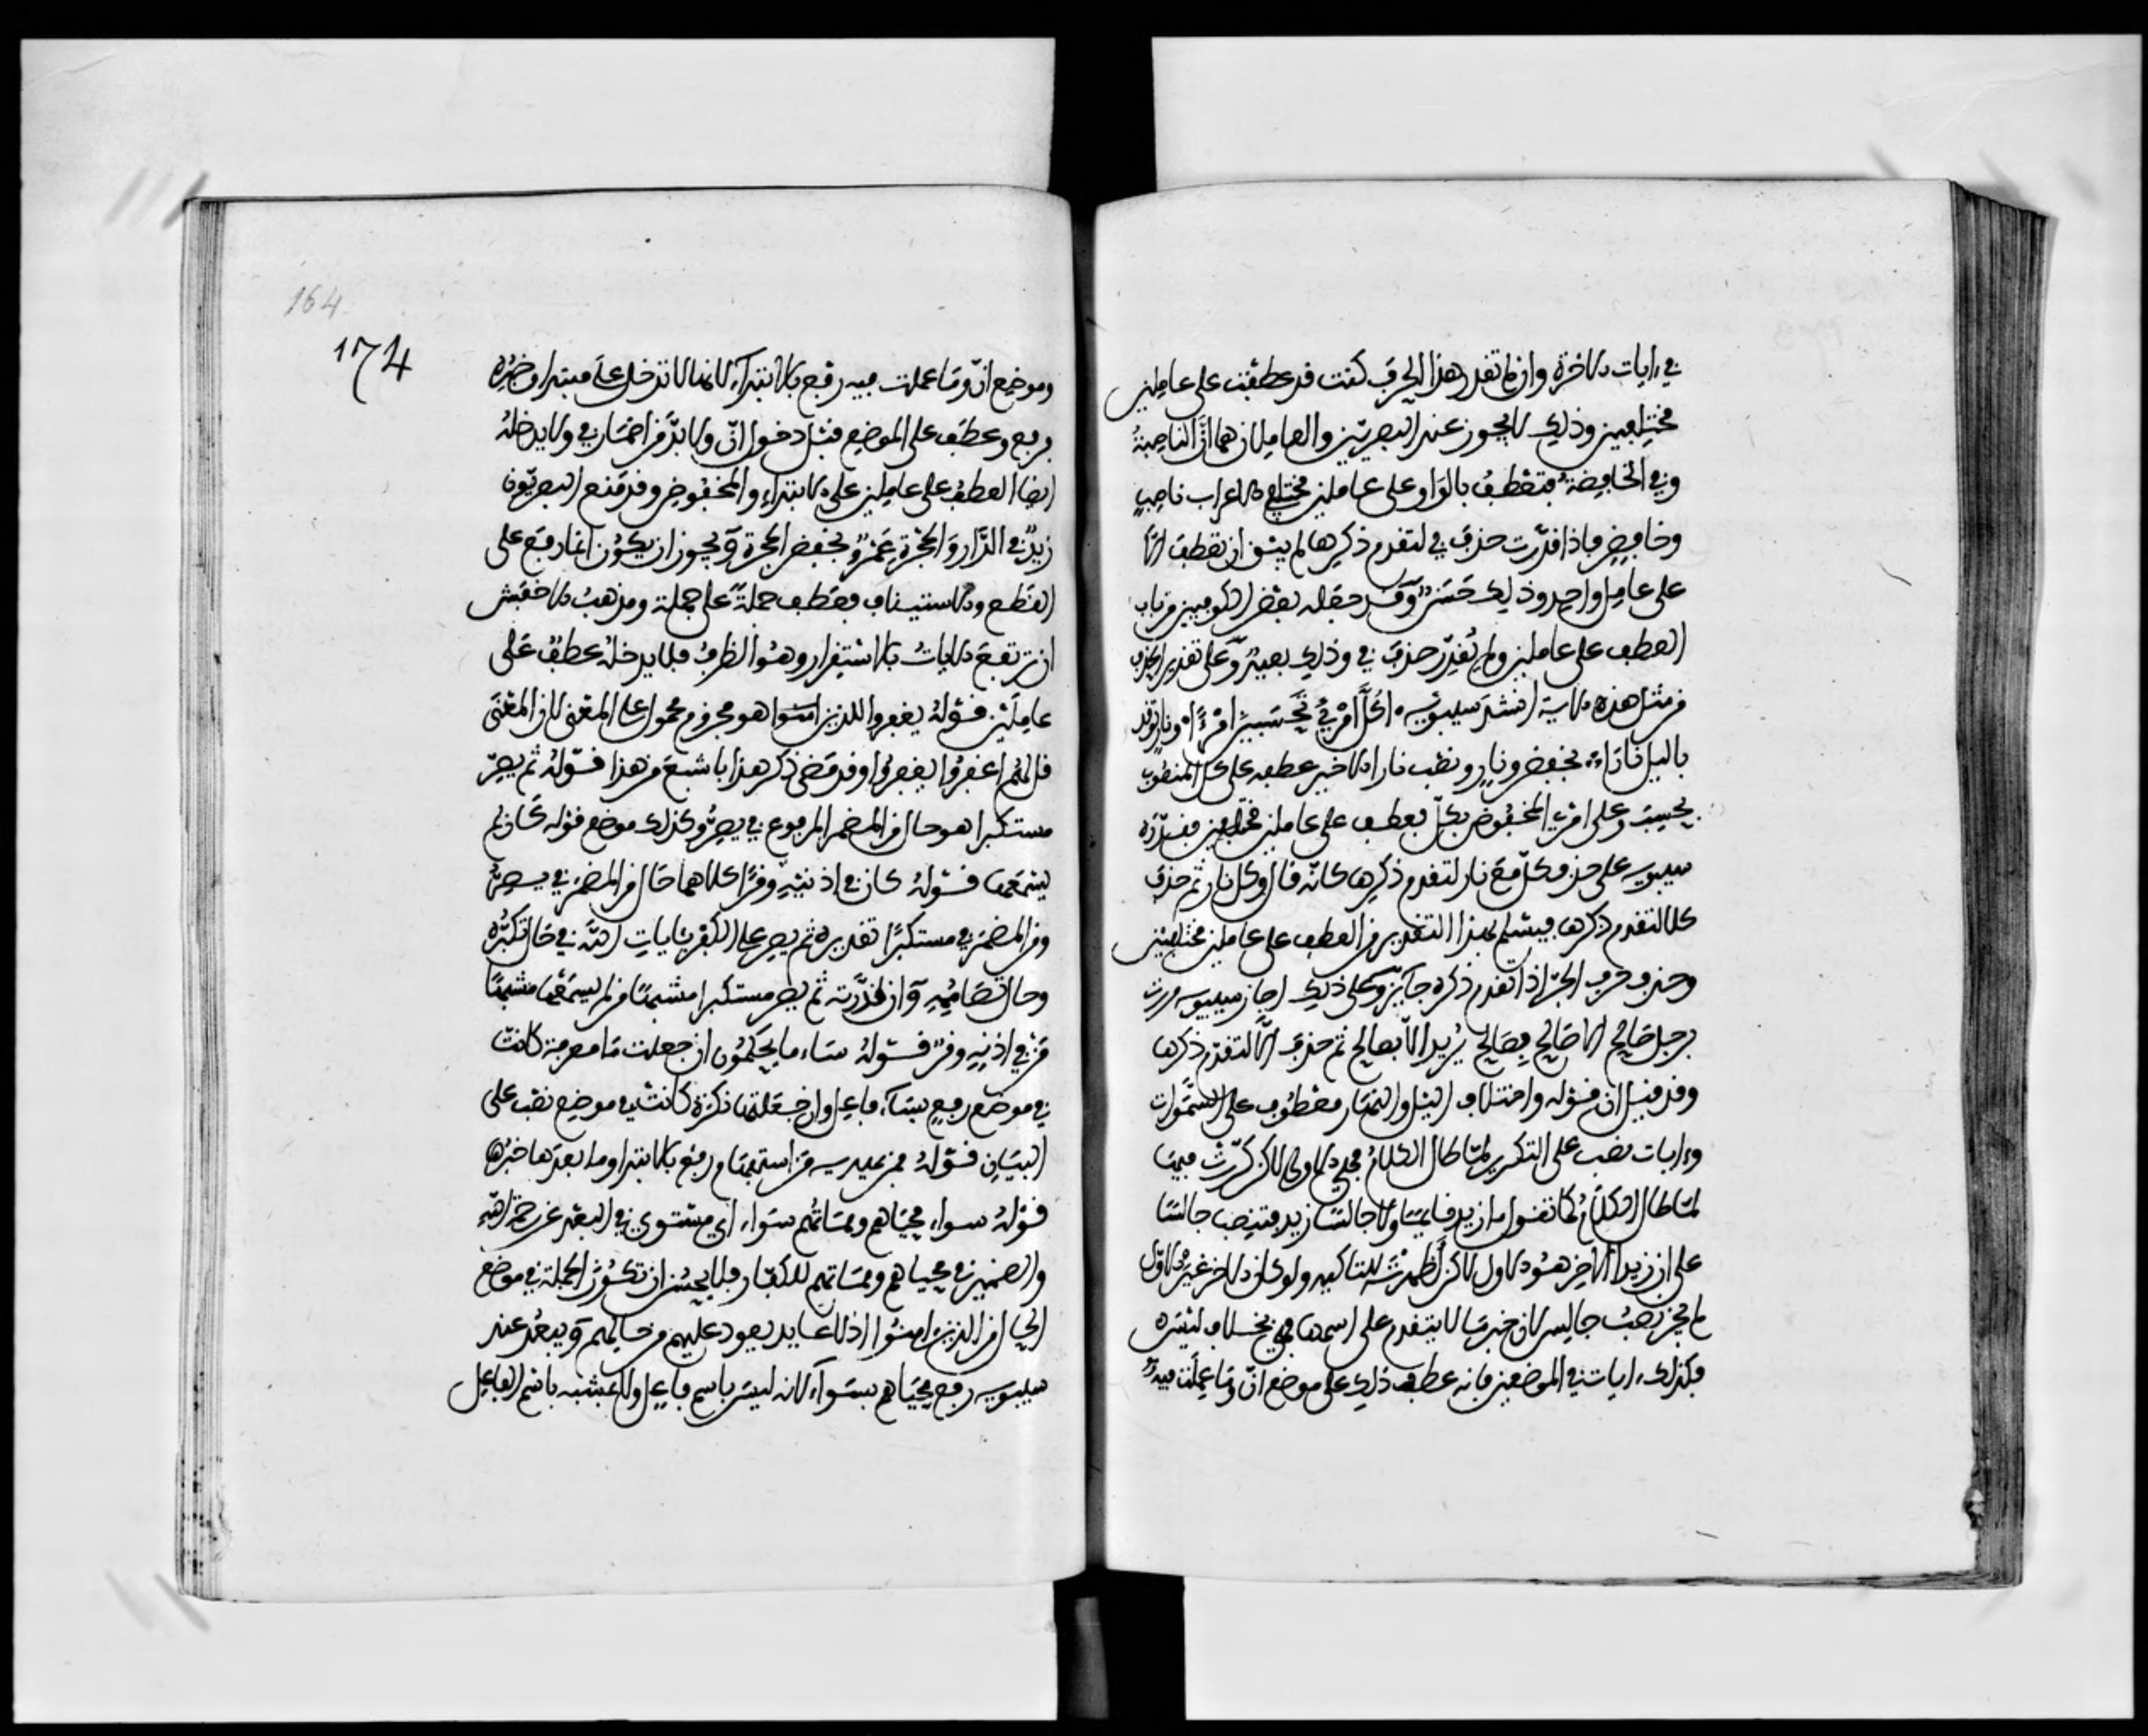 في ءايات الاخرة وان لم تقدر هذا الحرف كنت قد عطفت على عاملين
مختلفين وذلك لا يجوز عند البصريين والعاملان هما ان الناصبة
وفي الخافضة فتعطف بالواو على عاملين مختلفي الاعراب ناصب
وخافض فاذا قدرت حذف في لتقدم ذكرها لم يبق ان تعطف الا
على عامل واحد وذلك حسن وقد جعله بعض الكوفيين من باب
العطف على عاملين ولم يقدر حذف في وذلك بعيد وعلى تقدير الحذف
من مثل هذه الاية انشد سيبويه اكل امرئ تحسبين امرءا ونار توقد
بالليل نارا بخفض ونار ونصب نارا الاخير عطفه على كل المنصوب
بتحسب وعلى امرئ المخفوض بكل بعطف على عاملين مختلفين فقدره
سيبويه على حذف كل مع نار لتقدم ذكرها كانه قال وكل نار ثم حذف
كلا لتقدم ذكرها فيسلم بهذا التقدير من العطف على عاملين مختلفين
وحذف حرف الجر اذا تقدم ذكره جائز وعلى ذلك اجاز سيبويه مررت
برجل صالح الا صالح فصالح يريد الا بصالح ثم حذف الا لتقدم ذكرها
وقد قيل ان قوله واختلاف اليل والنهار معطوف على السموات
وءايات نصب على التكرير لما طال الكلام فهي الاولى لاكن كررت فيها
لما طال الكلام كما تقول ما زيد قايما ولا جالسا زيد فتنصب جالسا
على ان زيدا الاخر هو الاول لاكن أظهرته للتاكيد ولو كان الاخر غير الاول
لم يجز نصب جالس لان خبر ما لا يتقدم على اسمها فهي بخلاف ليس
فكذلك ءايات في الموضعين فانه عطف ذلك على موضع ان وما عملت فيه
164
174
وموضع ان وما عملت فيه رفع بالابتداء لانها لا تدخل على مبتدا وخبره
برفع وعطف على الموضع قبل دخول ان ولا بد من اضمار في ولا يدخله
ايضا العطف على عاملين على الابتداء والمخفوض وقد منع البصريون
زيد في الدار والحجرة عمرو بخفض الحجرة ويجوز ان يكون انما رفع على
القطع والاستيناف فعطف جملة على جملة ومذهب الاخفش
ان ترتفع الايات بالاستقرار وهو الظرف فلا يدخله عطف على
عاملين قوله يغفروا للذين امنوا هو مجزوم محمول على المعنى لان المعنى
قل لهم اغفروا يغفروا وقد مضى ذكر هذا باشبع من هذا قوله ثم يصر
مستكبرا هو حال من المضمر المرفوع في يصر وكذلك موضع قوله كان لم
يسمعها قوله كان في اذنيه وقرا كلاهما حال من المضمر في يصر
ومن المضمر في مستكبرا تقديره ثم يصر على الكفر بئايات الله في حال تكبره
وحال تصاممه وان قدرته ثم يصر مستكبرا مشبها من لم يسمعها مشبها
من في اذنيه وقر قوله ساء ما يحكمون ان جعلت ما معرفة كانت
في موضع رفع بساء فاعل وان جعلتها نكرة كانت في موضع نصب على
البيان قوله فمن يهديه من استفهام رفع بالابتدا وما بعدها خبرها
قوله سواء محياهم ومماتهم سواء اي مستوي في البعد عن رحمة الله
والضمير في محياهم ومماتهم للكفار فلا يحسن ان تكون الجملة في موضع
الحال من الذين امنوا اذ لا عايد يعود عليهم من حالهم ويبعد عند
سيبويه رفع محياهم بسواء لانه ليس باسم فاعل ولا مشبه باسم الفاعل